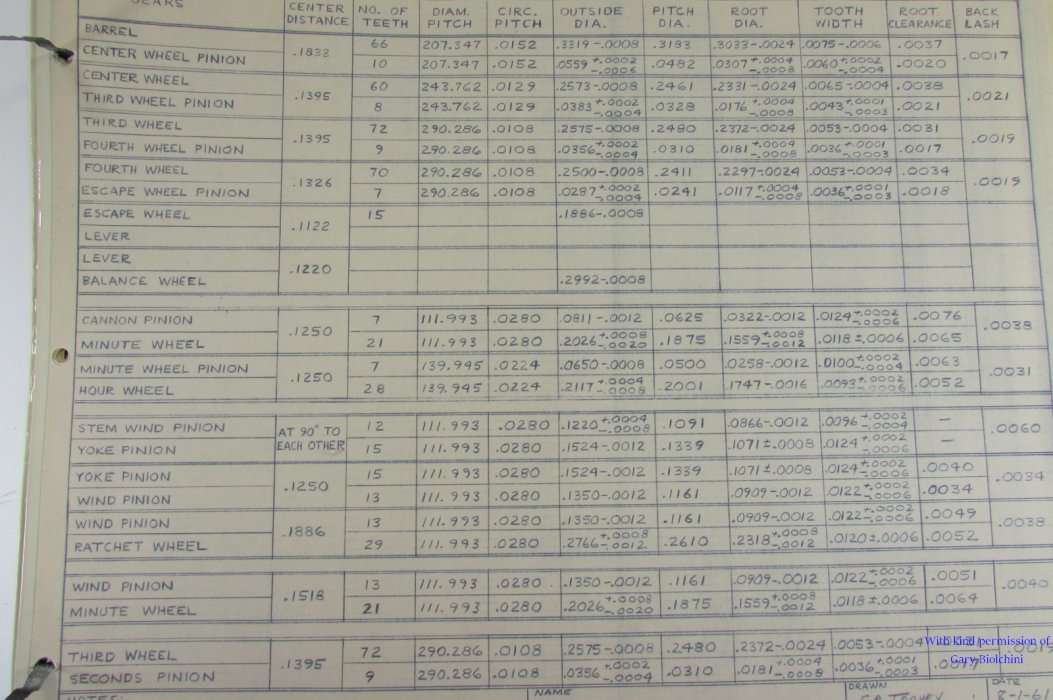 GEARS CENTER DISTANCE NO. OF TEETH DIAM. PITCH CIRC. PITCH OUTSIDE DIA. PITCH DIA. ROOT DIA. TOOTH WIDTH ROOT CLEARANCE BACK LASH
BARREL .1833 66 207.347 .0152 .3319-.0008 .3183 .3033-.0024 .0075-.0006 .0037 .0017
CENTER WHEEL PINION 10 207.347 .0152 .0559+.0002-.0006 .0482 .0307+.0004-.0008 .0060+.0002-.0004 .0020
CENTER WHEEL .1395 60 243.762 .0129 .2573-.0008 .2461 .2331-.0024 .0065-.0004 .0038 .0021
THIRD WHEEL PINION 8 243.762 .0129 .0383+.0002-.0004 .0328 .0176+.0004-.0008 .0043+.0001-.0003 .0021
THIRD WHEEL .1395 72 290.286 .0108 .2575-.0008 .2480 .2372-.0024 .0053-.0004 .0031 .0019
FOURTH WHEEL PINION 9 290.286 .0108 .0356+.0002-.0004 .0310 .0181+.0004-.0008 .0036+.0001-.0003 .0017
FOURTH WHEEL .1326 70 290.286 .0108 .2500-.0008 .2411 .2297-.0024 .0053-.0004 .0034 .0019
ESCAPE WHEEL PINION 7 290.286 .0108 .0287+.0002-.0004 .0241 .0117+.0004-.0008 .0036+.0001-.0003 .0018
ESCAPE WHEEL .1122 15 .1886-.0008
LEVER
LEVER .1220
BALANCE WHEEL .2992-.0008
CANNON PINION .1250 7 111.993 .0280 .0811-.0012 .0625 .0322-.0012 .0124+.0002-.0006 .0076 .0038
MINUTE WHEEL 21 111.993 .0280 .2026+.0008-.0020 .1875 .1559+.0008-.0012 .0118±.0006 .0065
MINUTE WHEEL PINION .1250 7 139.945 .0224 .0650-.0008 .0500 .0258-.0012 .0100+.0002-.0004 .0063 .0031
HOUR WHEEL 28 139.945 .0224 .2117+.0004-.0008 .2001 .1747-.0016 .0093+.0002-.0006 .0052
STEM WIND PINION AT 90° TO EACH OTHER 12 111.993 .0280 .1220+.0004-.0008 .1091 .0866-.0012 .0096+.0002-.0004 — .0060
YOKE PINION 15 111.993 .0280 .1524-.0012 .1339 .1071±.0008 .0124+.0002-.0006 —
YOKE PINION .1250 15 111.993 .0280 .1524-.0012 .1339 .1071±.0008 .0124+.0002-.0006 .0040 .0034
WIND PINION 13 111.993 .0280 .1350-.0012 .1161 .0909-.0012 .0122+.0002-.0006 .0034
WIND PINION .1886 13 111.993 .0280 .1350-.0012 .1161 .0909-.0012 .0122+.0002-.0006 .0049 .0038
RATCHET WHEEL 29 111.993 .0280 .2766+.0008-.0012 .2610 .2318+.0008-.0012 .0120±.0006 .0052
WIND PINION .1518 13 111.993 .0280 .1350-.0012 .1161 .0909-.0012 .0122+.0002-.0006 .0051 .0040
MINUTE WHEEL 21 111.993 .0280 .2026+.0008-.0020 .1875 .1559+.0008-.0012 .0118±.0006 .0064
THIRD WHEEL .1395 72 290.286 .0108 .2575-.0008 .2480 .2372-.0024 .0053-.0004
SECONDS PINION 9 290.286 .0108 .0356+.0002-.0004 .0310 .0181+.0004-.0008 .0036+.0001-.0003
With kind permission of
Gary Biolchini
NOTES: NAME DRAWN DATE
8-1-61